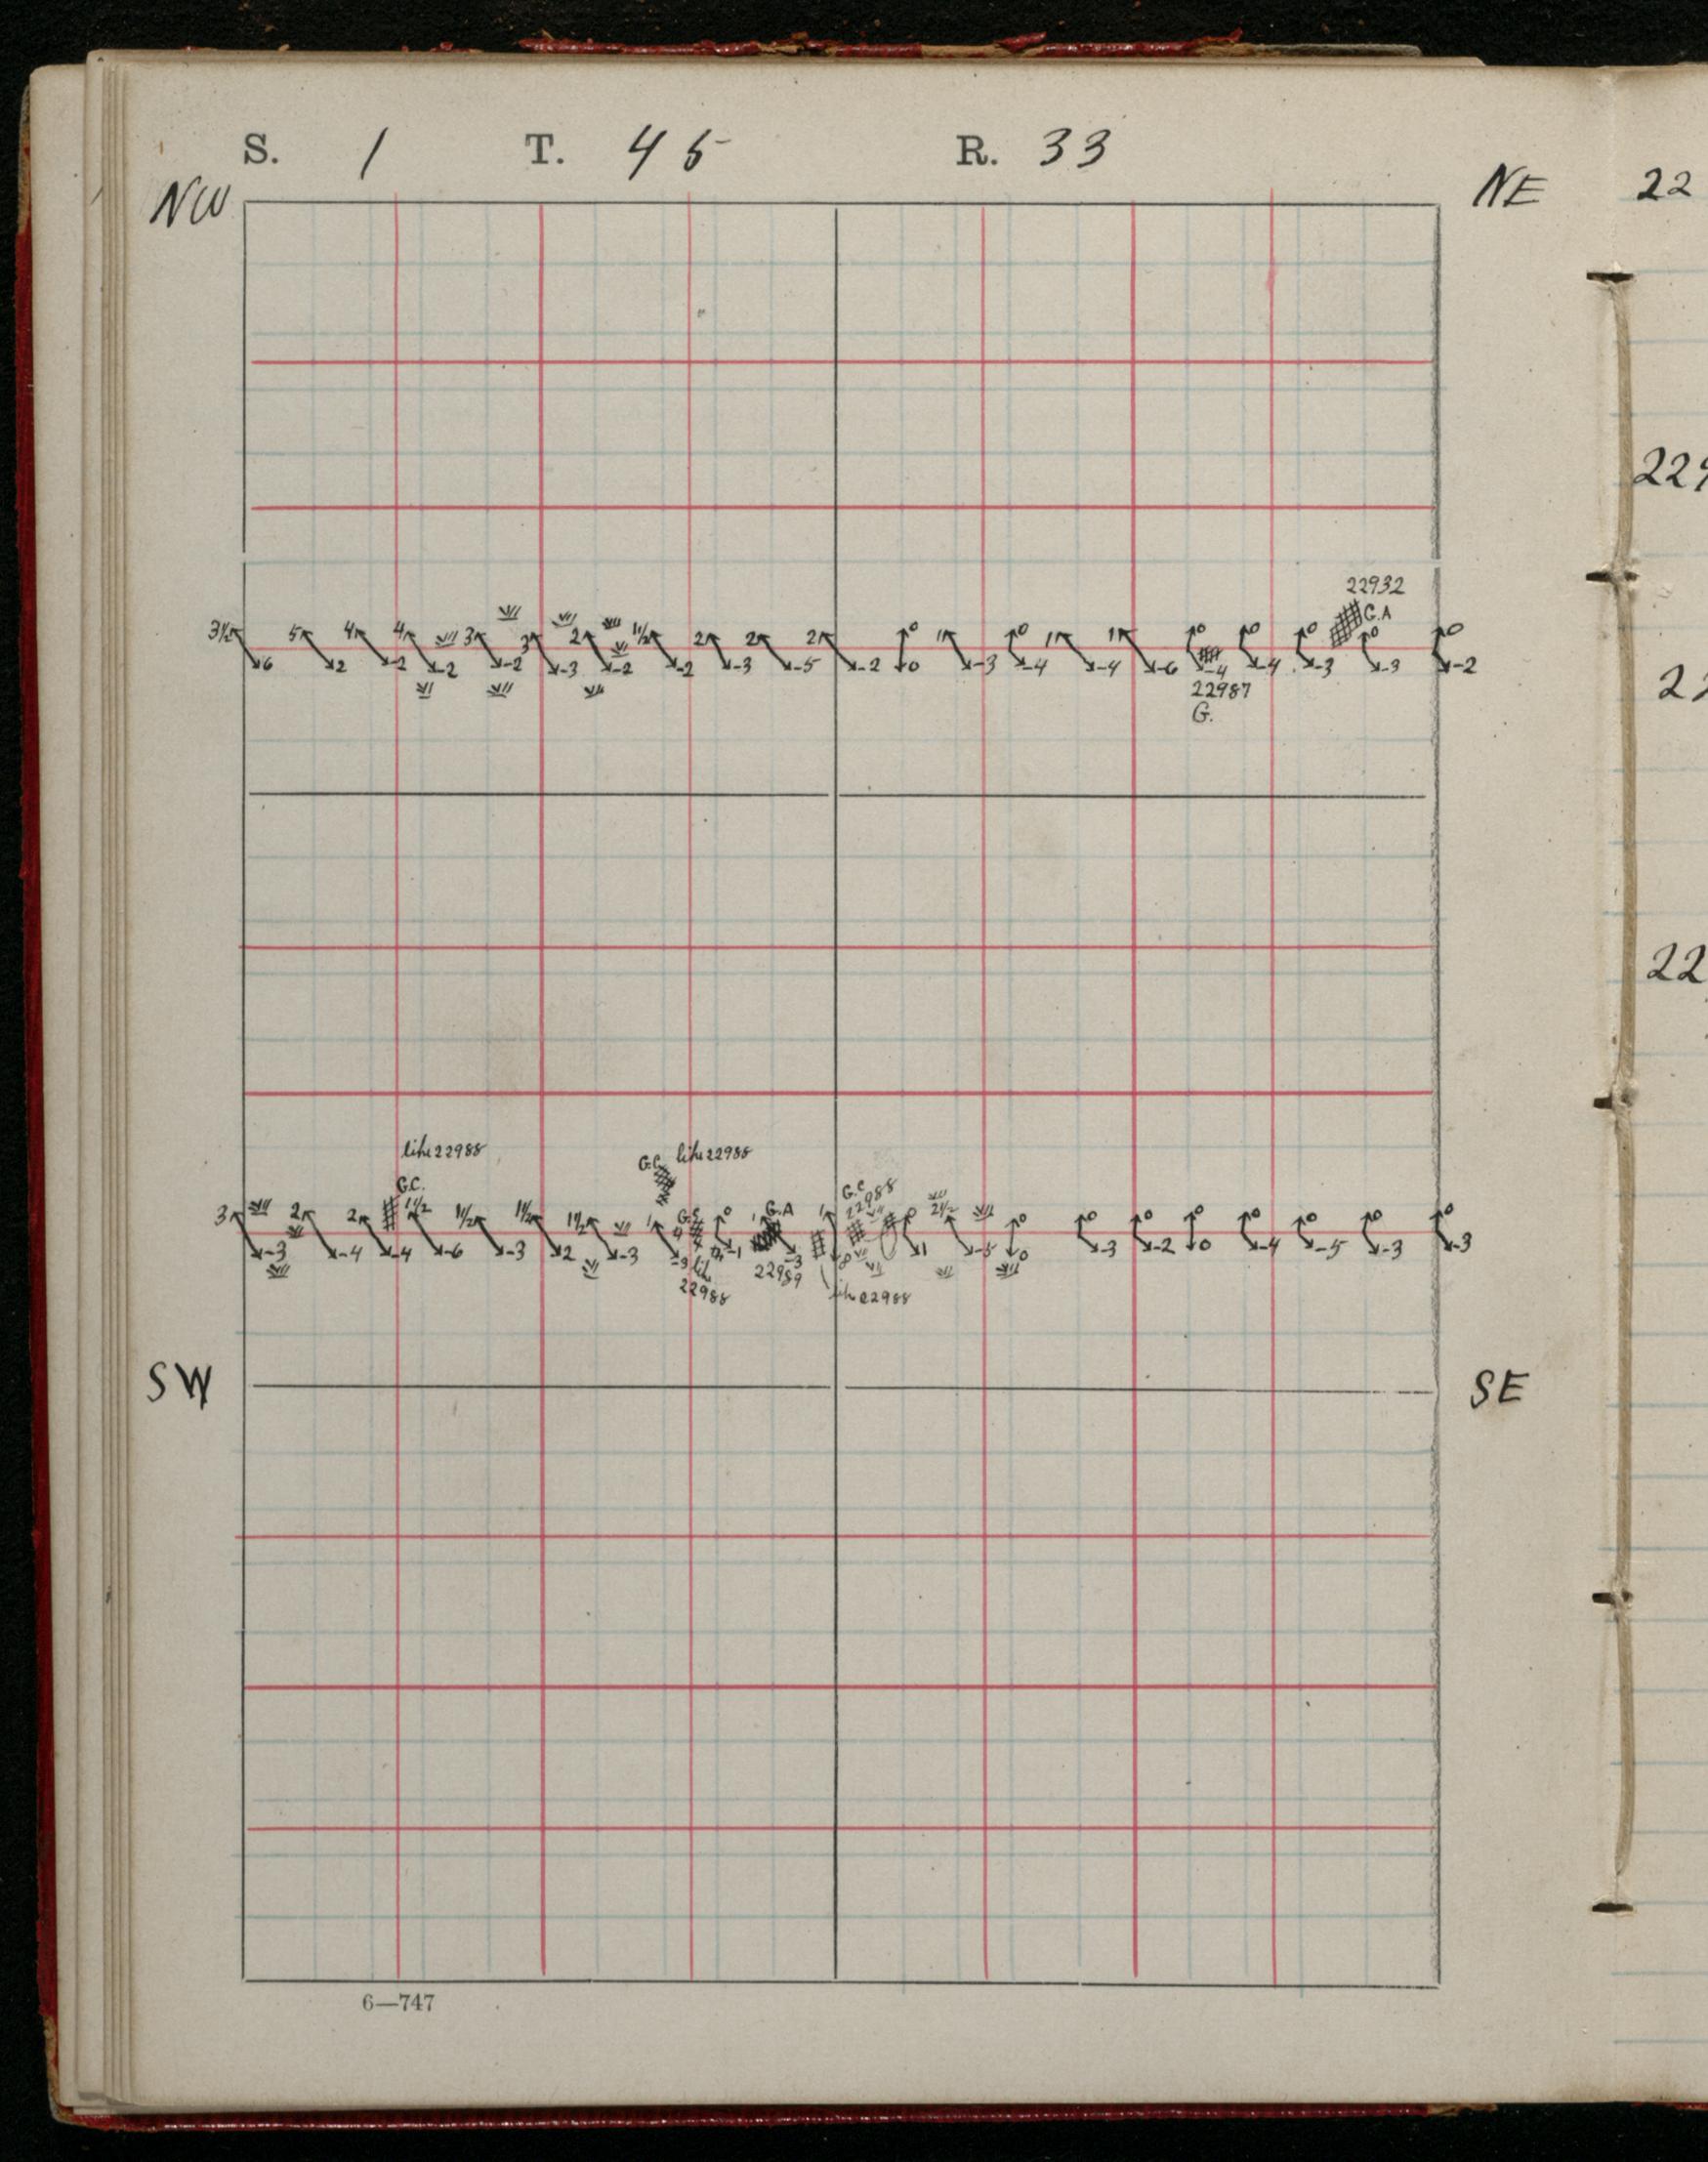 S. 1 T. 45 R. 33
NW NE 22
229
22
22
22932
G.A
3½ 5 4 4 3 3 2 1½ 2 2 2 0 1 0 1 1 0 0 0 0 0
6 2 -2 -2 -2 -3 -2 -2 -3 -5 -2 0 -3 -4 -4 -6 -4 -4 -3 -3 -2
22987
G.
like 22988 G.C. like 22988
G.C. G.C. 22988
3 2 2 1½ 1½ 1½ 1½ 1 G.S. 0 1 G.A 1 0 2½ 0 0 0 0 0 0 0 0
-3 -4 -4 -6 -3 2 -3 -3 -1 -3 8 1 -5 0 -3 -2 0 -4 -5 -3 -3
like 22988 22989 like 22988
SW SE
6—747